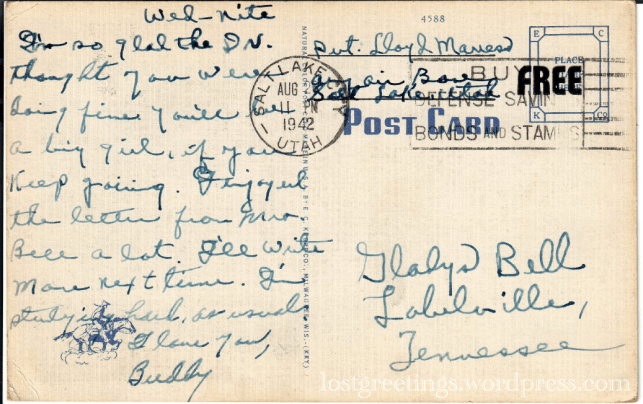 Wed-nite
I'm so glad the Dr.
thought you were
doing fine. You'll be
a big girl, if you
Keep going. I enjoyed
the letter from Mrs
Bell a lot. I'll write
more next time. I'm
studying hard, as usual
I love you,
Buddy
4588
Pvt. Lloyd
Air Base
Salt Lake Utah
SALT LAKE CITY
AUG
11
1942
UTAH
BUY
DEFENSE SAVINGS
BONDS AND STAMPS
FREE
E C
PLACE
K Co
POST CARD
Gladys Bell
Lobelville,
Tennessee
lostgreetings.wordpress.com